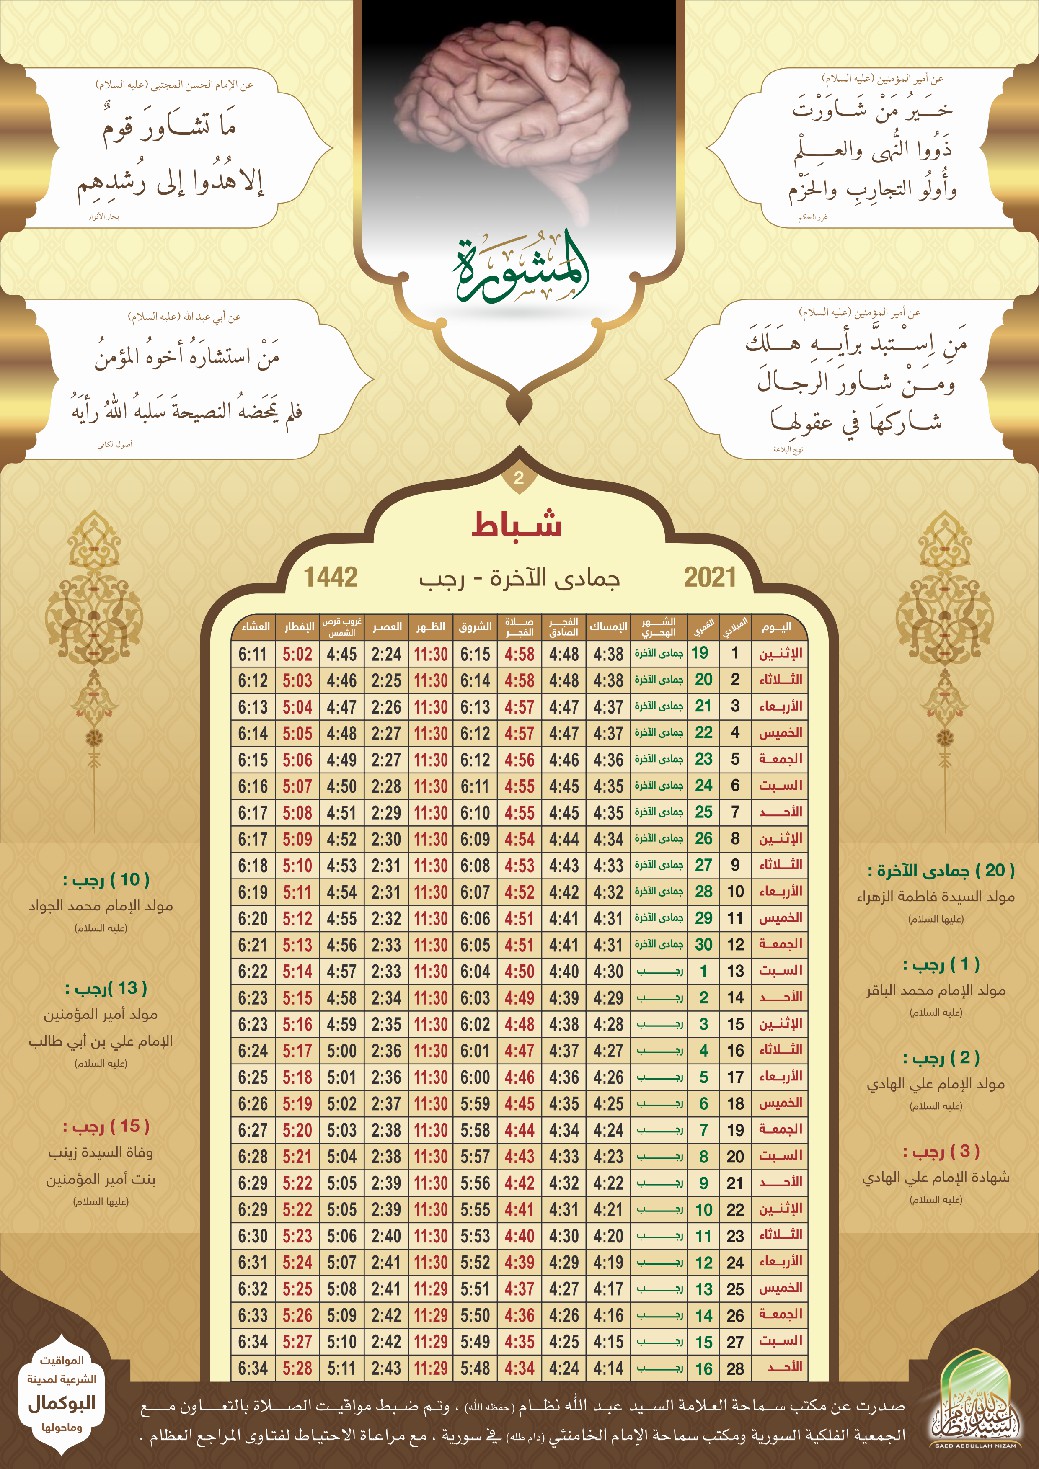 عن أمير المؤمنين (عليه السلام)
خَيرُ مَنْ شَاوَرْتَ
ذَوُوا النُّهى والعِلْم
وأُولُو التجارِبِ والحَزْم
غرر الحكم
عن الإمام الحسن المجتبى (عليه السلام)
مَا تشَاورَ قومٌ
إلا هُدُوا إلى رُشدِهِم
بحار الأنوار
المشورة
عن أمير المؤمنين (عليه السلام)
مَنِ اِسْتبدَّ برأيِهِ هَلَكَ
ومَنْ شاورَ الرجالَ
شاركهَا في عقولِهَا
نهج البلاغة
عن أبي عبد الله (عليه السلام)
مَنْ استشارَهُ أخوهُ المؤمنُ
فلم يَمحَضهُ النصيحةَ سَلبهُ اللهُ رأيَهُ
أصول الكافي
2
شباط
2021 جمادى الآخرة - رجب 1442
اليوم الميلادي القمري الشهر الهجري الإمساك الفجر الصادق صلاة الفجر الشروق الظهر العصر غروب قرص الشمس الإفطار العشاء
الإثنين 1 19 جمادى الآخرة 4:38 4:48 4:58 6:15 11:30 2:24 4:45 5:02 6:11
الثلاثاء 2 20 جمادى الآخرة 4:38 4:48 4:58 6:14 11:30 2:25 4:46 5:03 6:12
الأربعاء 3 21 جمادى الآخرة 4:37 4:47 4:57 6:13 11:30 2:26 4:47 5:04 6:13
الخميس 4 22 جمادى الآخرة 4:37 4:47 4:57 6:12 11:30 2:27 4:48 5:05 6:14
الجمعة 5 23 جمادى الآخرة 4:36 4:46 4:56 6:12 11:30 2:27 4:49 5:06 6:15
السبت 6 24 جمادى الآخرة 4:35 4:45 4:55 6:11 11:30 2:28 4:50 5:07 6:16
الأحد 7 25 جمادى الآخرة 4:35 4:45 4:55 6:10 11:30 2:29 4:51 5:08 6:17
الإثنين 8 26 جمادى الآخرة 4:34 4:44 4:54 6:09 11:30 2:30 4:52 5:09 6:17
الثلاثاء 9 27 جمادى الآخرة 4:33 4:43 4:53 6:08 11:30 2:31 4:53 5:10 6:18
الأربعاء 10 28 جمادى الآخرة 4:32 4:42 4:52 6:07 11:30 2:31 4:54 5:11 6:19
الخميس 11 29 جمادى الآخرة 4:31 4:41 4:51 6:06 11:30 2:32 4:55 5:12 6:20
الجمعة 12 30 جمادى الآخرة 4:31 4:41 4:51 6:05 11:30 2:33 4:56 5:13 6:21
السبت 13 1 رجب 4:30 4:40 4:50 6:04 11:30 2:33 4:57 5:14 6:22
الأحد 14 2 رجب 4:29 4:39 4:49 6:03 11:30 2:34 4:58 5:15 6:23
الإثنين 15 3 رجب 4:28 4:38 4:48 6:02 11:30 2:35 4:59 5:16 6:23
الثلاثاء 16 4 رجب 4:27 4:37 4:47 6:01 11:30 2:36 5:00 5:17 6:24
الأربعاء 17 5 رجب 4:26 4:36 4:46 6:00 11:30 2:36 5:01 5:18 6:25
الخميس 18 6 رجب 4:25 4:35 4:45 5:59 11:30 2:37 5:02 5:19 6:26
الجمعة 19 7 رجب 4:24 4:34 4:44 5:58 11:30 2:38 5:03 5:20 6:27
السبت 20 8 رجب 4:23 4:33 4:43 5:57 11:30 2:38 5:04 5:21 6:28
الأحد 21 9 رجب 4:22 4:32 4:42 5:56 11:30 2:39 5:05 5:22 6:29
الإثنين 22 10 رجب 4:21 4:31 4:41 5:55 11:30 2:39 5:05 5:22 6:29
الثلاثاء 23 11 رجب 4:20 4:30 4:40 5:53 11:30 2:40 5:06 5:23 6:30
الأربعاء 24 12 رجب 4:19 4:29 4:39 5:52 11:30 2:41 5:07 5:24 6:31
الخميس 25 13 رجب 4:17 4:27 4:37 5:51 11:29 2:41 5:08 5:25 6:32
الجمعة 26 14 رجب 4:16 4:26 4:36 5:50 11:29 2:42 5:09 5:26 6:33
السبت 27 15 رجب 4:15 4:25 4:35 5:49 11:29 2:42 5:10 5:27 6:34
الأحد 28 16 رجب 4:14 4:24 4:34 5:48 11:29 2:43 5:11 5:28 6:34
( 20 ) جمادى الآخرة :
مولد السيدة فاطمة الزهراء
(عليها السلام)
( 1 ) رجب :
مولد الإمام محمد الباقر
(عليه السلام)
( 2 ) رجب :
مولد الإمام علي الهادي
(عليه السلام)
( 3 ) رجب :
شهادة الإمام علي الهادي
(عليه السلام)
( 10 ) رجب :
مولد الإمام محمد الجواد
(عليه السلام)
( 13 )رجب :
مولد أمير المؤمنين
الإمام علي بن أبي طالب
(عليه السلام)
( 15 ) رجب :
وفاة السيدة زينب
بنت أمير المؤمنين
(عليها السلام)
صدرت عن مكتب سماحة العلامة السيد عبد الله نظام (حفظه الله) ، وتم ضبط مواقيت الصلاة بالتعاون مع
الجمعية الفلكية السورية ومكتب سماحة الإمام الخامنئي (دام ظله) في سورية ، مع مراعاة الاحتياط لفتاوى المراجع العظام .
المواقيت
الشرعية لمدينة
البوكمال
وماحولها
السيد عبد الله نظام
SAED ABDULLAH NIZAM